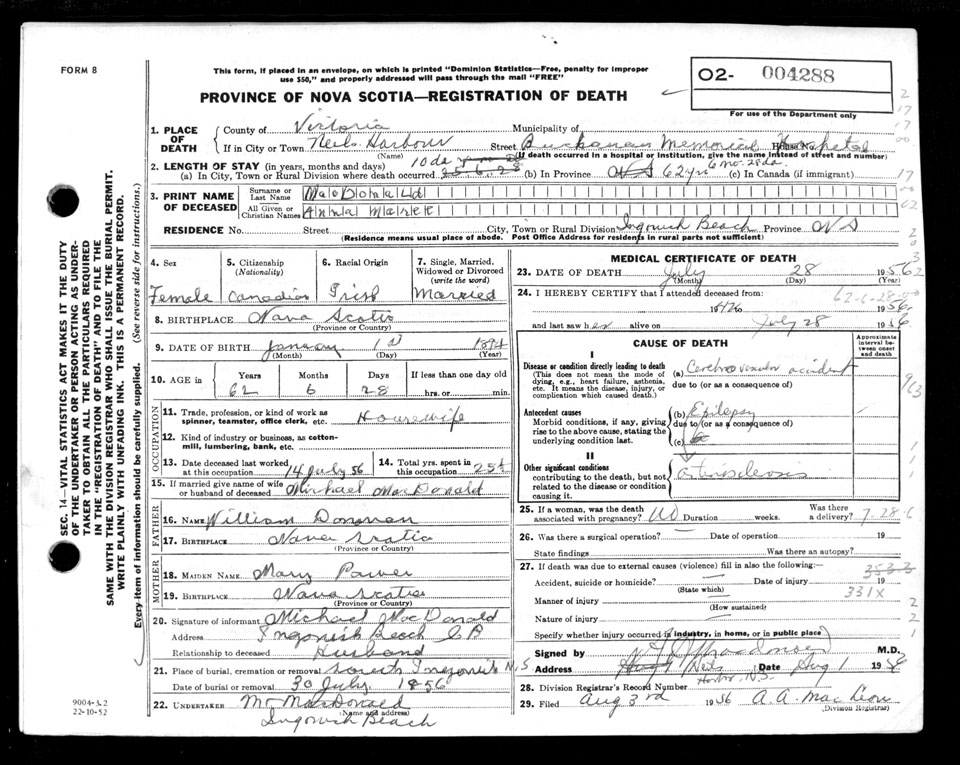 FORM 8
This form, if placed in an envelope, on which is printed "Dominion Statistics—Free, penalty for improper
use $50," and properly addressed will pass through the mail "FREE"
02- 004288
For use of the Department only
PROVINCE OF NOVA SCOTIA—REGISTRATION OF DEATH
1. PLACE OF DEATH County of Victoria Municipality of
If in City or Town Neils Harbour Street Buchanan Memorial Hospital House No.
(Name) (If death occurred in a hospital or institution, give the name instead of street and number)
2. LENGTH OF STAY (in years, months and days) 10 da 6 mo. 28 da.
(a) In City, Town or Rural Division where death occurred (b) In Province 62 yrs (c) In Canada (if immigrant)
3. PRINT NAME OF DECEASED Surname or Last Name MacDonald
All Given or Christian Names Anna Marie
RESIDENCE No. Street City, Town or Rural Division Ingonish Beach Province NS
(Residence means usual place of abode. Post Office Address for residents in rural parts not sufficient)
4. Sex Female
5. Citizenship (Nationality) Canadian
6. Racial Origin Irish
7. Single, Married, Widowed or Divorced (write the word) Married
8. BIRTHPLACE Nova Scotia
(Province or Country)
9. DATE OF BIRTH January 1st 1894
(Month) (Day) (Year)
10. AGE in Years 62 Months 6 Days 28 If less than one day old hrs. or min.
OCCUPATION
11. Trade, profession, or kind of work as spinner, teamster, office clerk, etc. Housewife
12. Kind of industry or business, as cotton-mill, lumbering, bank, etc.
13. Date deceased last worked at this occupation 14 July 56
14. Total yrs. spent in this occupation 25
15. If married give name of wife or husband of deceased Michael MacDonald
FATHER
16. Name William Donovan
17. Birthplace Nova Scotia
(Province or Country)
MOTHER
18. Maiden Name Mary Power
19. Birthplace Nova Scotia
(Province or Country)
20. Signature of informant Michael MacDonald
Address Ingonish Beach CB
Relationship to deceased Husband
21. Place of burial, cremation or removal South Ingonish N.S
Date of burial or removal 30 July 1956
22. UNDERTAKER Mr MacDonald
(Name and address)
Ingonish Beach
MEDICAL CERTIFICATE OF DEATH
23. DATE OF DEATH July 28 1956
(Month) (Day) (Year)
24. I HEREBY CERTIFY that I attended deceased from:
1956
and last saw her alive on July 28 1956
CAUSE OF DEATH
Approximate interval between onset and death
I
Disease or condition directly leading to death
(This does not mean the mode of dying, e.g., heart failure, asthenia, etc. It means the disease, injury, or complication which caused death.)
(a) Cerebrovascular accident
due to (or as a consequence of)
Antecedent causes
Morbid conditions, if any, giving rise to the above cause, stating the underlying condition last.
(b) Epilepsy
due to (or as a consequence of)
(c)
II
Other significant conditions
contributing to the death, but not related to the disease or condition causing it.
arteriosclerosis
25. If a woman, was the death associated with pregnancy? No Duration weeks. Was there a delivery?
26. Was there a surgical operation? Date of operation 19
State findings Was there an autopsy?
27. If death was due to external causes (violence) fill in also the following:—
3533
Accident, suicide or homicide? Date of injury 19
(State which)
331X
Manner of injury
(How sustained)
Nature of injury
Specify whether injury occurred in industry, in home, or in public place
Signed by M.D.
Address Neils Harbor, N.S. Date Aug 1 1956
28. Division Registrar's Record Number
29. Filed Aug 3rd 1956 A. A. MacLeon
(Division Registrar)
9004-3.2
22-10-52
SEC. 14—VITAL STATISTICS ACT MAKES IT THE DUTY
OF THE UNDERTAKER OR PERSON ACTING AS UNDER-
TAKER TO OBTAIN ALL THE PARTICULARS REQUIRED
IN THE "REGISTRATION OF DEATH" AND TO FILE THE
SAME WITH THE DIVISION REGISTRAR WHO SHALL ISSUE THE BURIAL PERMIT.
WRITE PLAINLY WITH UNFADING INK. THIS IS A PERMANENT RECORD.
Every item of information should be carefully supplied. (See reverse side for instructions.)